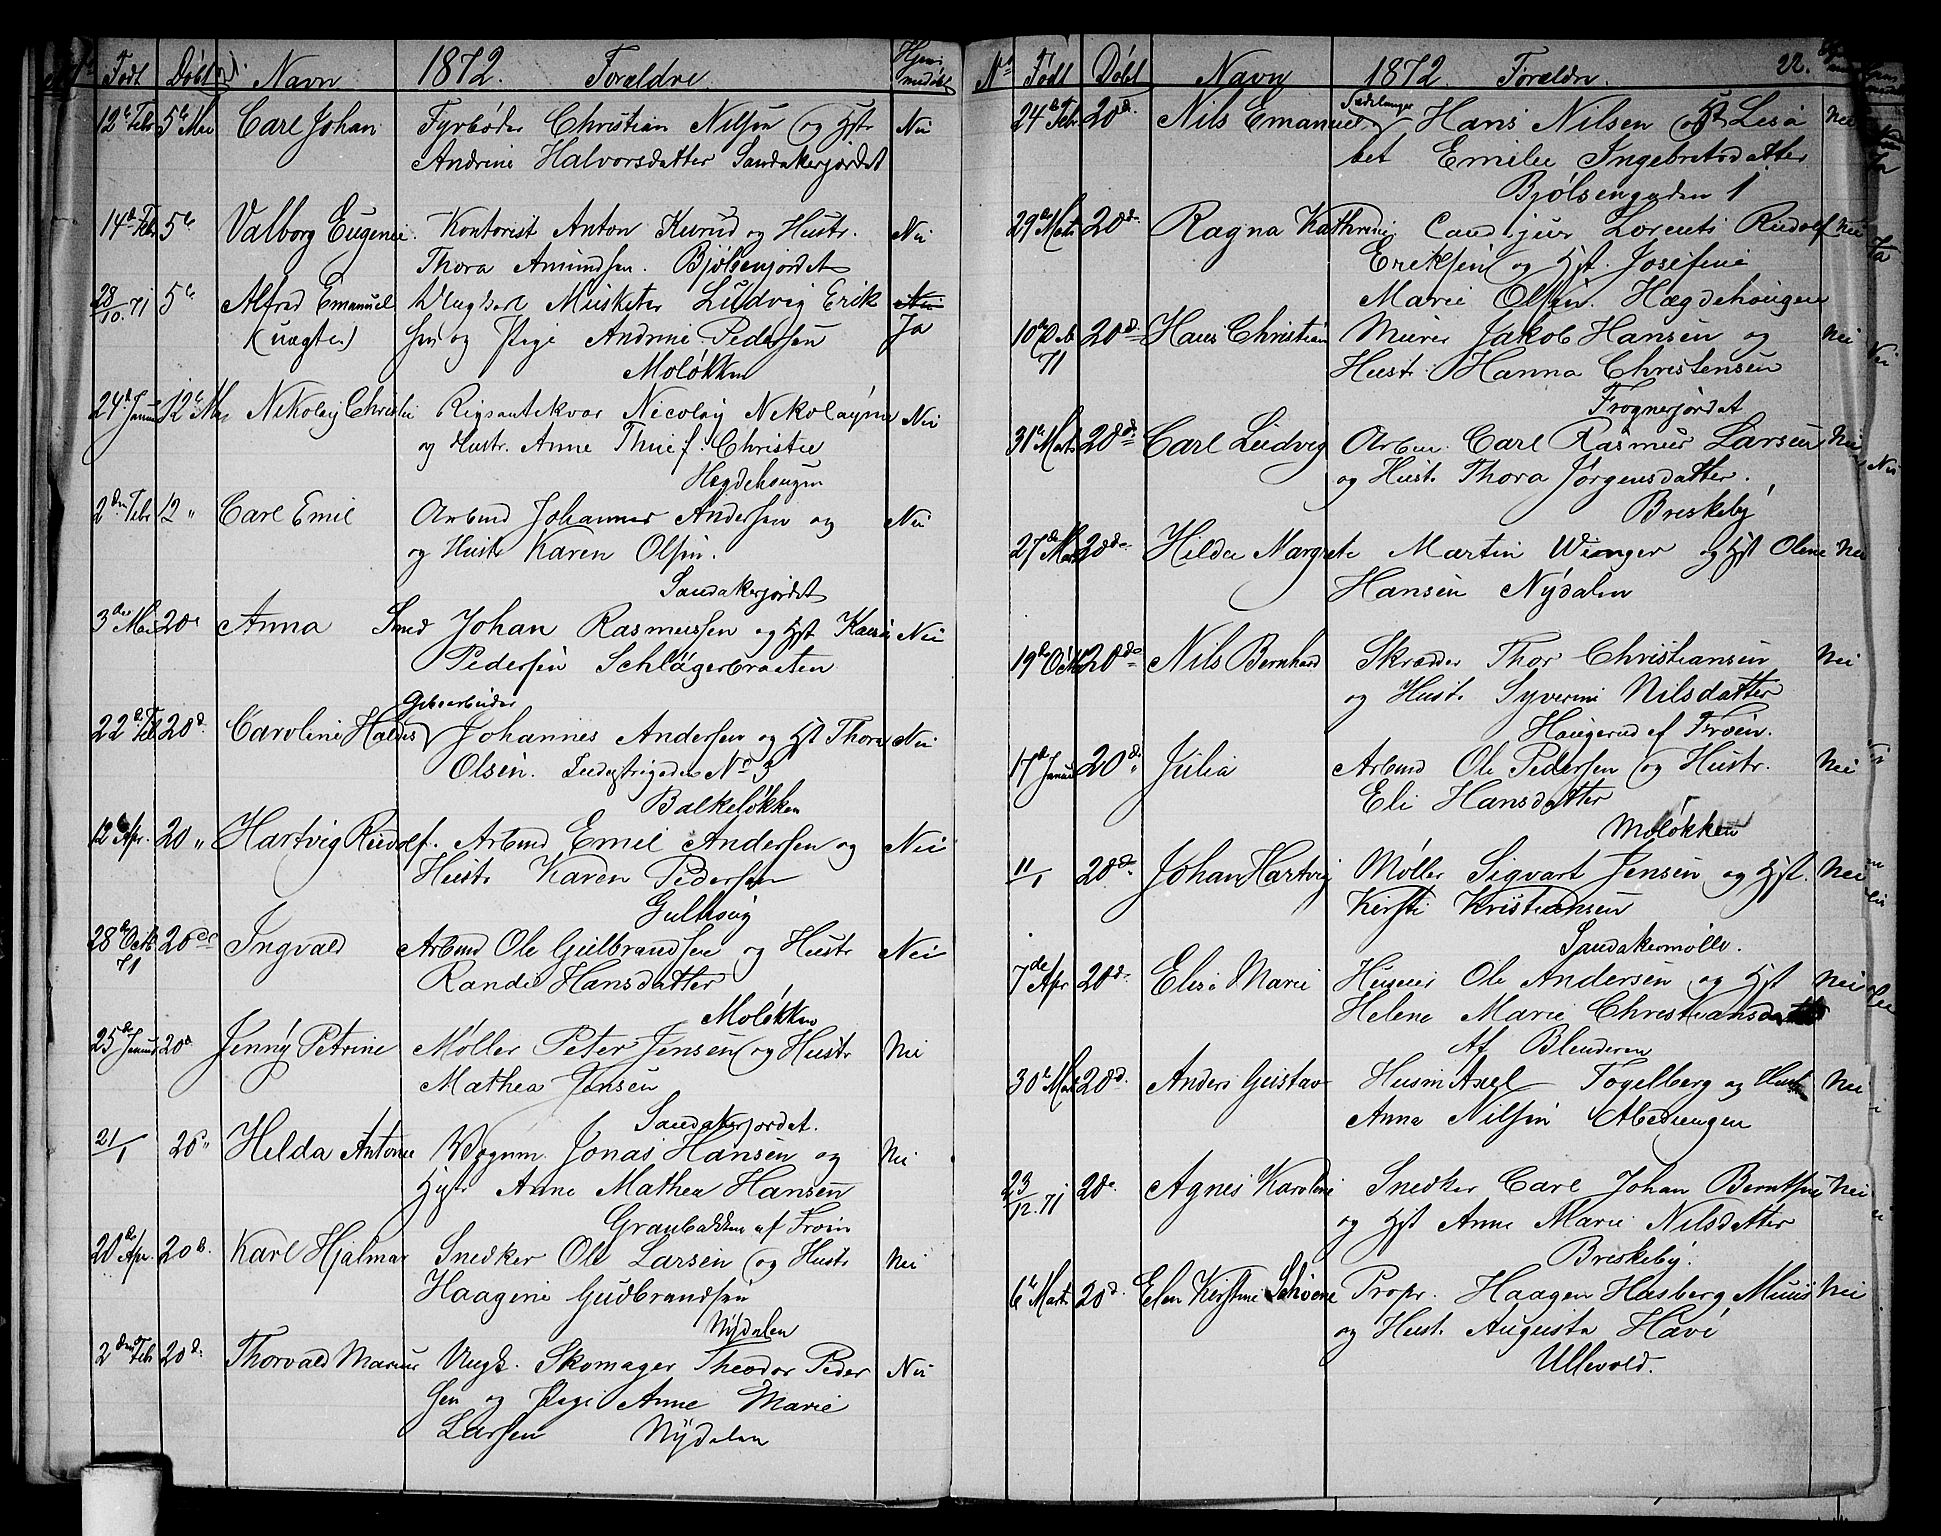 Født Døbt Navn 1872. Forældre. Hjemmedøbt
12te Febr 5te Mai Carl Johan Fyrbøder Christian Nilsen og Hstr Nei
Andrine Halvorsdatter Sandakerjordet
14de Febr 5te Valborg Eugenie. Kontorist Anton Kurud og Hustr. Nei
Thora Amundsen. Bjølsenjordet
28/10.71 5te Alfred Emanuel Musketer Ludvig Erik Nei
(uægte) sen og Pige Andrine Pedersen Ja
Moløkken
24de Januar 12te Mai Nikolaj Christie Rigsantikvar Nicolay Nikolaysen Nei
og Hustr. Anne Thue f. Christie
Hægdehougen
2den Febr 12 " Carl Emil Arbmd Johannes Andersen og Nei
og Hustr Karen Olsen.
Sandakerjordet
3die Mai 20de Anna Smed Johan Rasmussen og Hst Nei
Pedersen Schlägerbraaten
22de Feb 20d. Caroline Johannes Andersen og Hst Thora Nei
Olsen. No 3
Balkeløkken
12te Apr. 20 " Hartvig Rudolf. Arbmd Emil Andersen og Nei
Hustr Karen Pedersen
Gulhoug
28de Octbr 71 20de Ingvald Arbmd Ole Gulbrandsen og Hustr Nei
Randi Hansdatter
Moløkken
25de Januar 20d Jenny Petrine Møller Peter Jensen og Hustr Nei
Mathea Jensen
Sandakerjordet.
21/1 20 " Helda Antonie Vognm. Jonas Hansen og Nei
Hstr Anne Mathea Hansen
Granbakken af Frøen
20de Apr. 20d. Karl Hjalmar Snedker Ole Larsen og Hustr Nei
Haagine Gudbrandsen
Nydalen
2den Febr 20d. Thorvald Marius Ungk. Skomager Theodor Peder Nei
sen og Pige Anne Marie
Larsen Nydalen
No Født Døbt Navn 1872 Forældre. 22.
24de Febr 20de Nils Emanuel Sadelmager Hans Nilsen og Hst Lisa Nei
bet Emilie Ingebretsdatter
Bjølsengaden 1
29de Marts 20de Ragna Kathrine Cand jur Lorents Rudolf Nei
Eriksen og Hst. Josefine
Marie Olsen. Hægdehougen
10de Dcb 71 20de Hans Christian Murer Jakob Hansen og Nei
Hust. Hanna Christensen
Frognerjordet
31te Marts 20de Carl Ludvig Arbm. Carl Rasmus Larsen Nei
og Hust. Thora Jørgensdatter.
Breskeby
27de Marts 20de Hilda Margrete Martin Winger og Hst Oline Nei
Hansen Nydalen
19de Octbr 20de Nils Bernhard Skrædder Thor Christiansen Nei
og Hust. Syverine Nilsdatter
Haugerud af Frøen.
17de Januar 20de Julia Arbmd Ole Pedersen og Hustr. Nei
Eli Hansdatter
Moløkken
11/1 20de Johan Hartvig Møller Sigvart Jensen og Hst. Nei
Kirsti Kristiansen
Sandakermølle.
7de Apr 20de Elise Marie Ole Andersen og Hst Nei
Helene Marie Christiansdatter
Af Blenderen
30te Mai 20d. Anders Gustav Husm Axel Fogelberg og Hust Nei
Anna Nilsen Abedsengen
23/12.71 20de Agnes Karoline Snedker Carl Johan Berntsen Nei
og Hst Anne Marie Nilsdatter
Breskeby.
6te Marts 20d. Elen Kirstine Propr. Haagen Hasberg Nei
og Hust. Augusta
Ullevold.